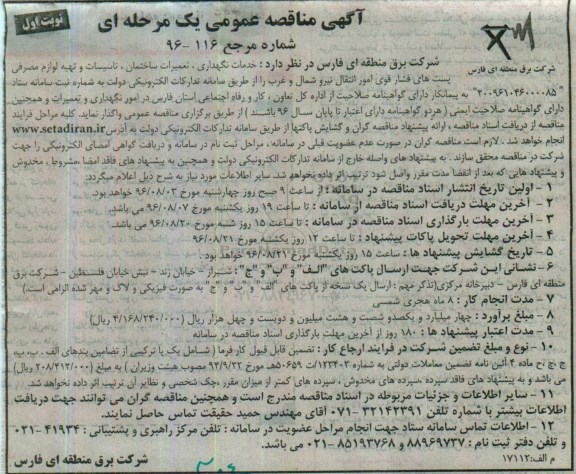 آگهی مناقصه عمومی یک مرحله ای
نوبت اول
شماره مرجع ۱۱۶-۹۶
شرکت برق منطقه ای فارس
شرکت برق منطقه ای فارس در نظر دارد : خدمات نگهداری ، تعمیرات ساختمان ، تاسیسات و تهیه لوازم مصرفی
پست های فشار قوی امور انتقال نیرو شمال و غرب را از طریق سامانه تدارکات الکترونیکی دولت به شماره ثبت سامانه ستاد
"۲۰۰۹۶۱۰۴۶۰۰۰۰۸۵" به پیمانکار دارای گواهینامه صلاحیت از اداره کل تعاون ، کار و رفاه اجتماعی استان فارس در امور نگهداری و تعمیرات و همچنین
دارای گواهینامه صلاحیت ایمنی ( هر دو گواهینامه دارای اعتبار تا پایان سال ۹۶ باشند ) از طریق برگزاری مناقصه عمومی واگذار نماید. کلیه مراحل فرایند
مناقصه از دریافت اسناد مناقصه ، ارائه پیشنهاد مناقصه گران و گشایش پاکتها از طریق سامانه تدارکات الکترونیکی دولت به آدرس www.setadiran.ir
انجام خواهد شد . لازم است مناقصه گران در صورت عدم عضویت قبلی در سامانه ، مراحل ثبت نام در سامانه و دریافت گواهی امضای الکترونیکی را جهت
شرکت در مناقصه محقق سازند . به پیشنهاد های واصله خارج از سامانه تدارکات الکترونیکی دولت و همچنین به پیشنهاد های فاقد امضا ،مشروط ، مخدوش
و پیشنهاد هایی که بعد از انقضا مدت مقرر واصل شود ترتیب اثر داده نخواهد شد. سایر اطلاعات مورد نیاز به شرح ذیل اعلام میگردد.
۱ - اولین تاریخ انتشار اسناد مناقصه در سامانه : از ساعت ۹ صبح روز چهارشنبه مورخ ۹۶/۰۸/۰۳ خواهد بود.
۲ - آخرین مهلت دریافت اسناد مناقصه از سامانه : تا ساعت ۱۹ روز یکشنبه مورخ ۹۶/۰۸/۰۷ می باشد.
۳ - آخرین مهلت بارگذاری اسناد مناقصه در سامانه : تا ساعت ۱۵ روز شنبه مورخ ۹۶/۰۸/۲۰ می باشد.
۴ - آخرین مهلت تحویل پاکات پیشنهاد : تا ساعت ۱۲ روز یکشنبه مورخ ۹۶/۰۸/۲۱
۵ - تاریخ گشایش پیشنهاد ها : ساعت ۱۵ روز یکشنبه مورخ ۹۶/۰۸/۲۱ خواهد بود.
۶ - نشانی این شرکت جهت ارسال پاکت های "الف" و "ب" و "ج" : شیراز - خیابان زند - نبش خیابان فلسطین - شرکت برق
منطقه ای فارس - دبیرخانه مرکزی(تذکر مهم : ارسال یک نسخه از پاکت های "الف" و "ب" و "ج" به صورت فیزیکی و لاک و مهر شده الزامی است.)
۷ - مدت انجام کار : ۸ ماه هجری شمسی
۸ - مبلغ برآورد : چهار میلیارد و یکصدو شصت و هشت میلیون و دویست و چهل هزار ریال (۴/۱۶۸/۲۴۰/۰۰۰ ریال)
۹ - مدت اعتبار پیشنهاد ها : ۱۸۰ روز از آخرین مهلت بارگذاری اسناد مناقصه در سامانه
۱۰ - نوع و مبلغ تضمین شرکت در فرایند ارجاع کار : تضمین قابل قبول کارفرما ( شامل یک یا ترکیبی از تضامین بندهای الف ، ب، پ،
ج ،چ ،ح ماده ۴ آئین نامه تضمین معاملات دولتی به شماره ۱۲۳۴۰۲/ت۵۰۶۵۹ه‍ مورخ ۹۴/۹/۲۲ مصوب هیئت وزیران ) به مبلغ (۲۰۸/۴۱۲/۰۰۰ ریال)
می باشد و به پیشنهاد های فاقد سپرده ،سپرده های مخدوش ، سپرده های کمتر از میزان مقرر ،چک شخصی و نظایر آن ترتیب اثر داده نخواهد شد.
۱۱ - سایر اطلاعات و جزئیات مربوطه در اسناد مناقصه مندرج است و همچنین مناقصه گران می توانند جهت دریافت
اطلاعات بیشتر با شماره تلفن ۳۲۱۴۲۳۹۱-۰۷۱ آقای مهندس حمید حقیقت تماس حاصل نمایند.
۱۲ - اطلاعات تماس سامانه ستاد جهت انجام مراحل عضویت در سامانه : تلفن مرکز راهبری و پشتیبانی : ۴۱۹۳۴-۰۲۱
و تلفن دفتر ثبت نام : ۸۸۹۶۹۷۳۷ و ۸۵۱۹۳۷۶۸-۰۲۱ می باشد.
م الف: ۱۷۱۱۲
شرکت برق منطقه ای فارس